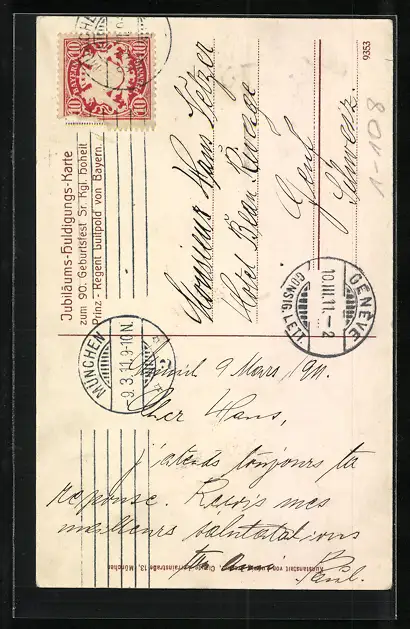 Jubiläums-Huldigungs-Karte
zum 90. Geburtsfest Sr. Kgl. Hoheit
Prinz-Regent Luitpold von Bayern.
BAYERN
10
10
Monsieur Hans Setzer
Hotel Beau Rivage
Genf
Schweiz.
9353
1-108
MÜNCHEN
9.3.11.9-10N.
GENÈVE
10.III.11.-2
CONSIG. LETT.
9 Mars 1911.
Cher Hans,
j'attends toujours ta
reponse. Reçois mes
meilleurs salutations
ton ami
Paul.
Kunstanstalt von
13, München